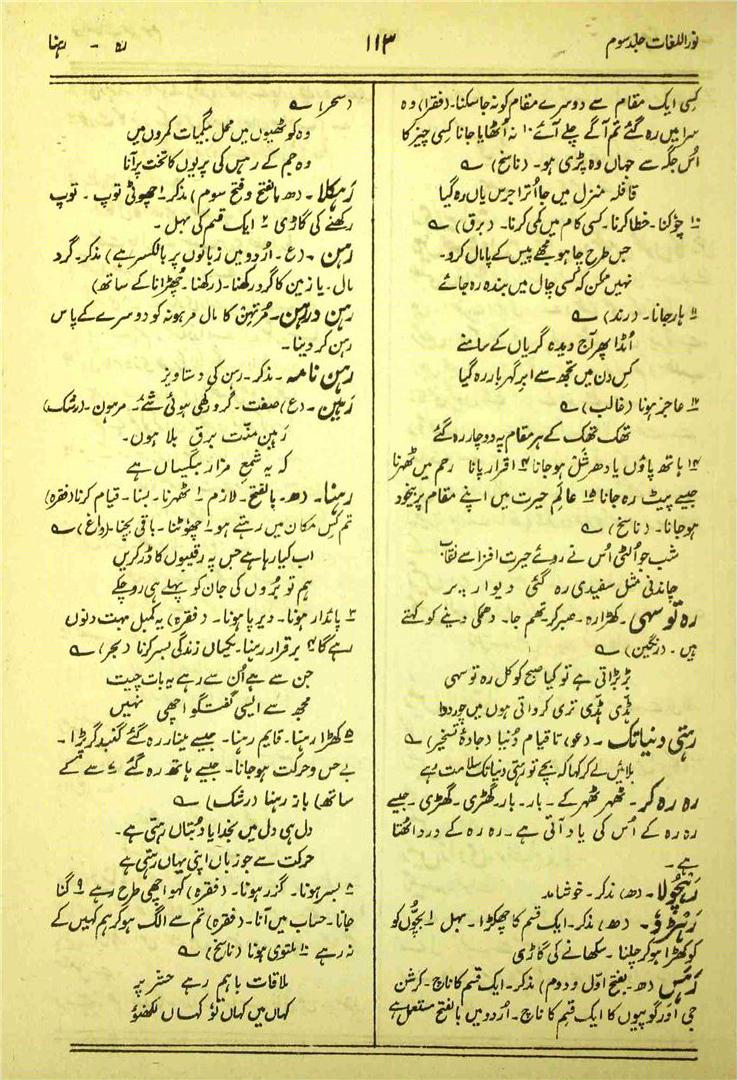 نور اللغات جلد سوم
۱۱۳
رہ - رہنا
کسی ایک مقام سے دوسرے مقام کو نہ جا سکنا۔ (فقرا) وہ
سرا میں رہ گئے تم آگے چلے آئے ۱۰ نہ اُٹھایا جانا کسی چیز کا
اُس جگہ سے جہاں وہ پڑی ہو۔ (ناسخ) ے
قافلہ منزل میں جا اُترا جرس یاں رہ گیا
۱۰ چوکنا۔ خطا کرنا۔ کسی کام میں کمی کرنا۔ (برق) ے
جس طرح چاہو مجھے پیس کے پامال کرو۔
نہیں ممکن کہ کسی چال میں بندہ رہ جائے
۱۱ ہار جانا۔ (رند) ے
اُمڈا پھر آج دیدہ گریاں کے سامنے
کس دن میں تجھ سے ابر گہر بار رہ گیا
۱۲ عاجز ہونا (غالب) ے
تھک تھک کے ہر مقام پہ دو چار رہ گئے
۱۳ ہاتھ پاؤں یا دھر شل ہو جانا ۱۴ اقرار پانا رحم میں ٹھہرنا
جیسے پیٹ رہ جانا ۱۵ عالمِ حیرت میں اپنے مقام پر بیخود
ہو جانا۔ (ناسخ) ے
شب جو اُلٹی اُس نے روئے حیرت افزا سے نقاب
چاندنی مثل سفیدی رہ گئی دیوار پر
رہ تو سہی۔ کھڑا رہ۔ صبر کر۔ تھم جا۔ دھمکی دینے کو کہتے
ہیں۔ (رنگین) ے
بڑبڑاتی ہے تو کیا صبح کو کل رہ تو سہی
ہڈی ہڈی تری کرواتی ہوں میں چور ددا
رہتی دنیا تک۔ (عو) تا قیام دُنیا (جادۂ تسخیر) ے
بلائیں لے کر کہا کہ بچے تو رہتی دنیا تک سلامت رہے
رہ رہ کر۔ ٹھہر ٹھہر کے۔ بار۔ بار۔ گھڑی۔ گھڑی۔ جیسے
رہ رہ کے اُس کی یاد آتی ہے۔ رہ رہ کے درد اُٹھتا
ہے۔
رہچولا۔ (ھ) مذکر۔ خوشامد
رہڑو۔ (ھ) مذکر۔ ایک قسم کا چھکڑا۔ بہل ۱ بچّوں کو
کو کھڑا ہو کر چلنا۔ سکھانے کی گاڑی
رہس (ھ۔ بفتح اوّل و دوم) مذکر۔ ایک قسم کا ناچ۔ کرشن
جی اور گوپیوں کا ایک قسم کا ناچ۔ اُردو میں بالفتح مستعمل ہے
(سحر) ے
وہ کوٹھیوں میں محل بیگمات کمروں میں
وہ جم کے رہس کی پریوں کا تخت پر آنا
رہکلا۔ (ھ بالفتح و فتح سوم) مذکر۔ ۱ چھوٹی توپ۔ توپ
رکھنے کی گاڑی ۲ ایک قسم کی بہل۔
رہن۔ (ع۔ اُردو میں زبانوں پر بالکسر ہے) مذکر۔ گرد
مال۔ یا زمین کا گرد رکھنا۔ (رکھنا۔ چھڑانا کے ساتھ)
رہن در رہن۔ مُرتہن کا مال مرہونہ کو دوسرے کے پاس
رہن کر دینا۔
رہن نامہ۔ مذکر۔ رہن کی دستاویز
رہین۔ (ع) صفت۔ گرو رکھی ہوئی شئے۔ مرہون۔ (رشک)
رہینِ منّت برق بلا ہوں۔
کہ یہ شمعِ مزار بیکساں ہے
رہنا۔ (ھ۔ بالفتح۔ لازم ۱ ٹھہرنا۔ بسنا۔ قیام کرنا (فقرہ)
تم کس مکان میں رہتے ہو ۲ چھوٹنا۔ باقی بچنا۔ (داغ) ے
اب کیا رہا ہے جس پہ رقیبوں کا ڈر کریں
ہم تو بڑوں کی جان کو پہلے ہی رو چکے
۳ پائدار ہونا۔ دیرپا ہونا۔ (فقرہ) یہ کمبل بہت دنوں
رہے گا ۴ برقرار رہنا۔ یکساں زندگی بسر کرنا (بحر) ے
جن سے ہے اُن سے رہے یہ بات چیت
مجھ سے ایسی گفتگو اچھی نہیں
۵ کھڑا رہنا۔ قایم رہنا۔ جیسے مینار رہ گئے گنبد گر پڑا۔
بے حس و حرکت ہو جانا۔ جیسے ہاتھ رہ گئے ۷ سے (کے
ساتھ) باز رہنا (رشک) ے
دل ہی دل میں بخدا یادِ بُتاں رہتی ہے۔
حرکت سے جو زباں اپنی یہاں رہتی ہے
۸ بسر ہونا۔ گزر ہونا۔ (فقرہ) کہو اچھی طرح رہے ۹ گنا
جانا۔ حساب میں آنا۔ (فقرہ) تم سے الگ ہو کر ہم کہیں کے
نہ رہے ۱۰ ملتوی ہونا (ناسخ) ے
ملاقات باہم رہے حشر پر
کہاں میں کہاں تو کہاں لکھنؤ